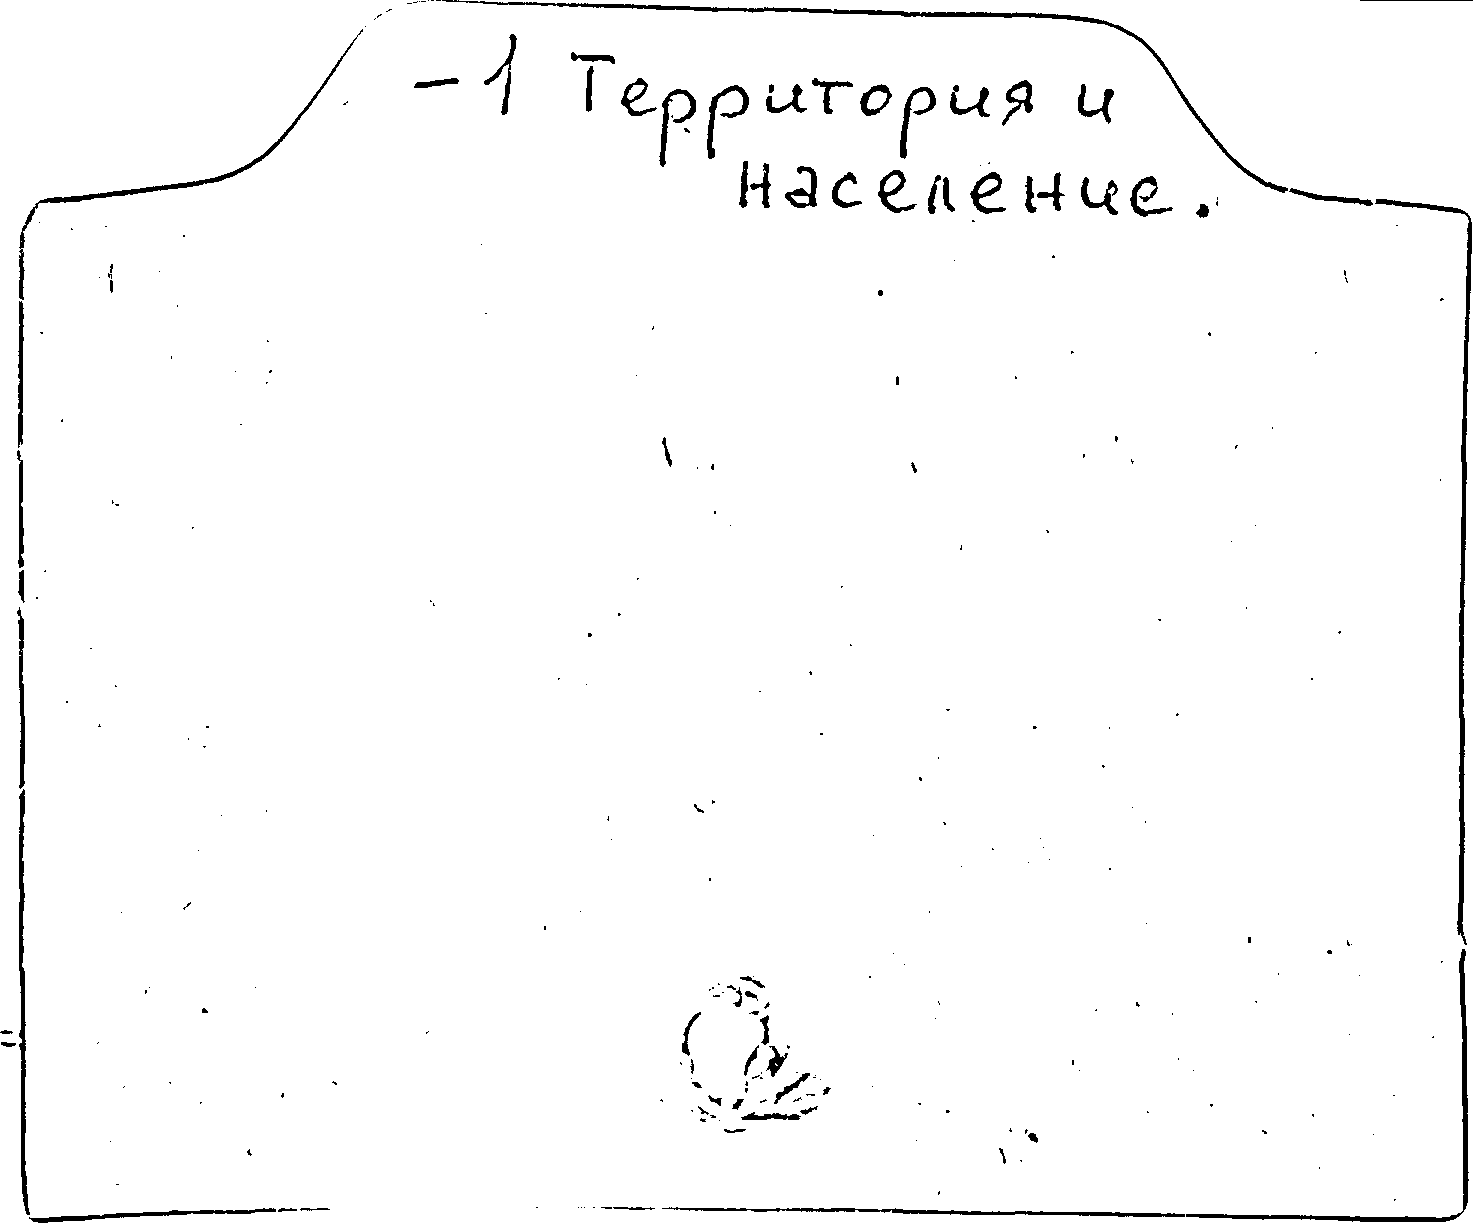 -1 Территория и
население.